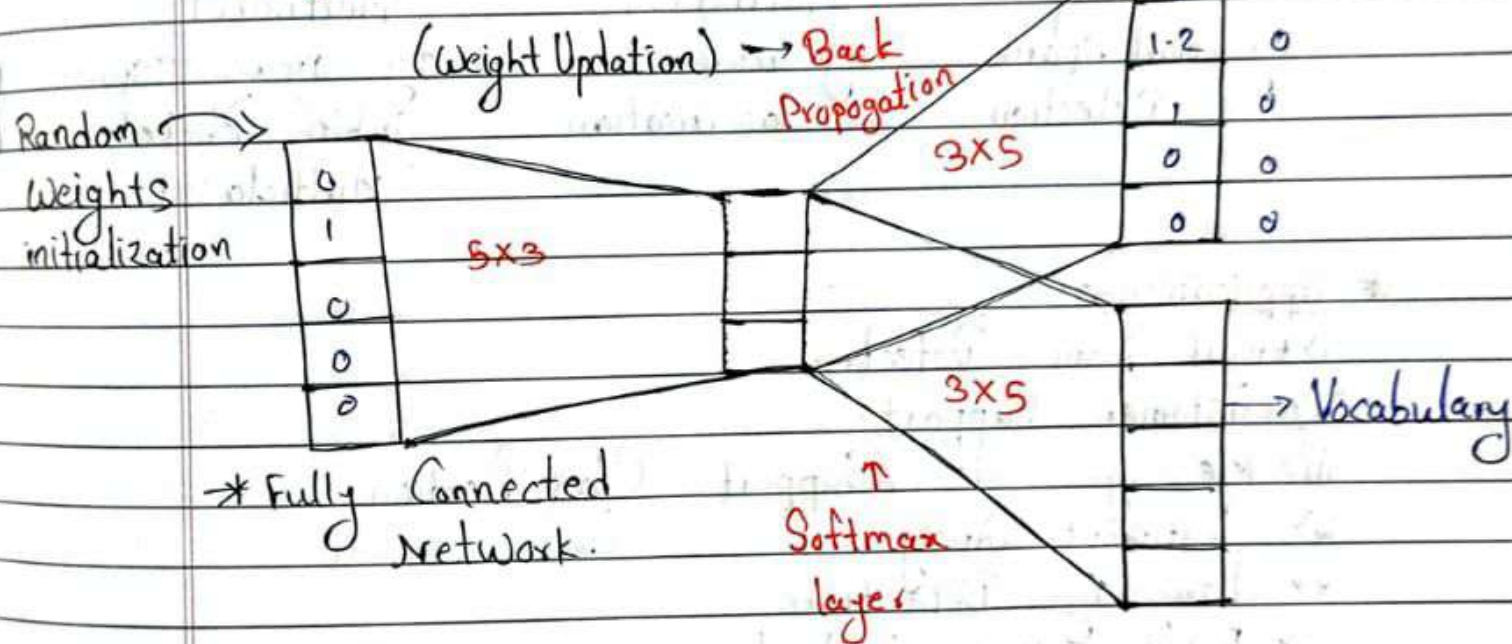 (Weight Updation) → Back
Propogation
Random
Weights
initialization
0
1
0
0
0
5x3
3x5
1.2 0
1 0
0 0
0 0
3x5
→ Vocabulary
* Fully Connected
Network.
↑
Softmax
layer